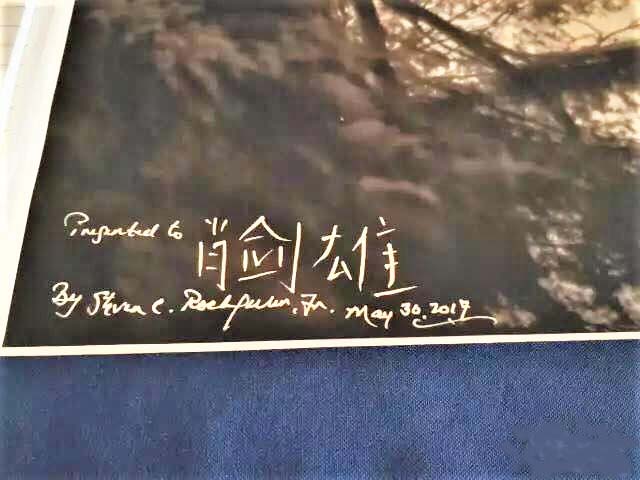 Presented to 肖剑雄
By Steven C. Rockefeller, Jr. May 30, 2019